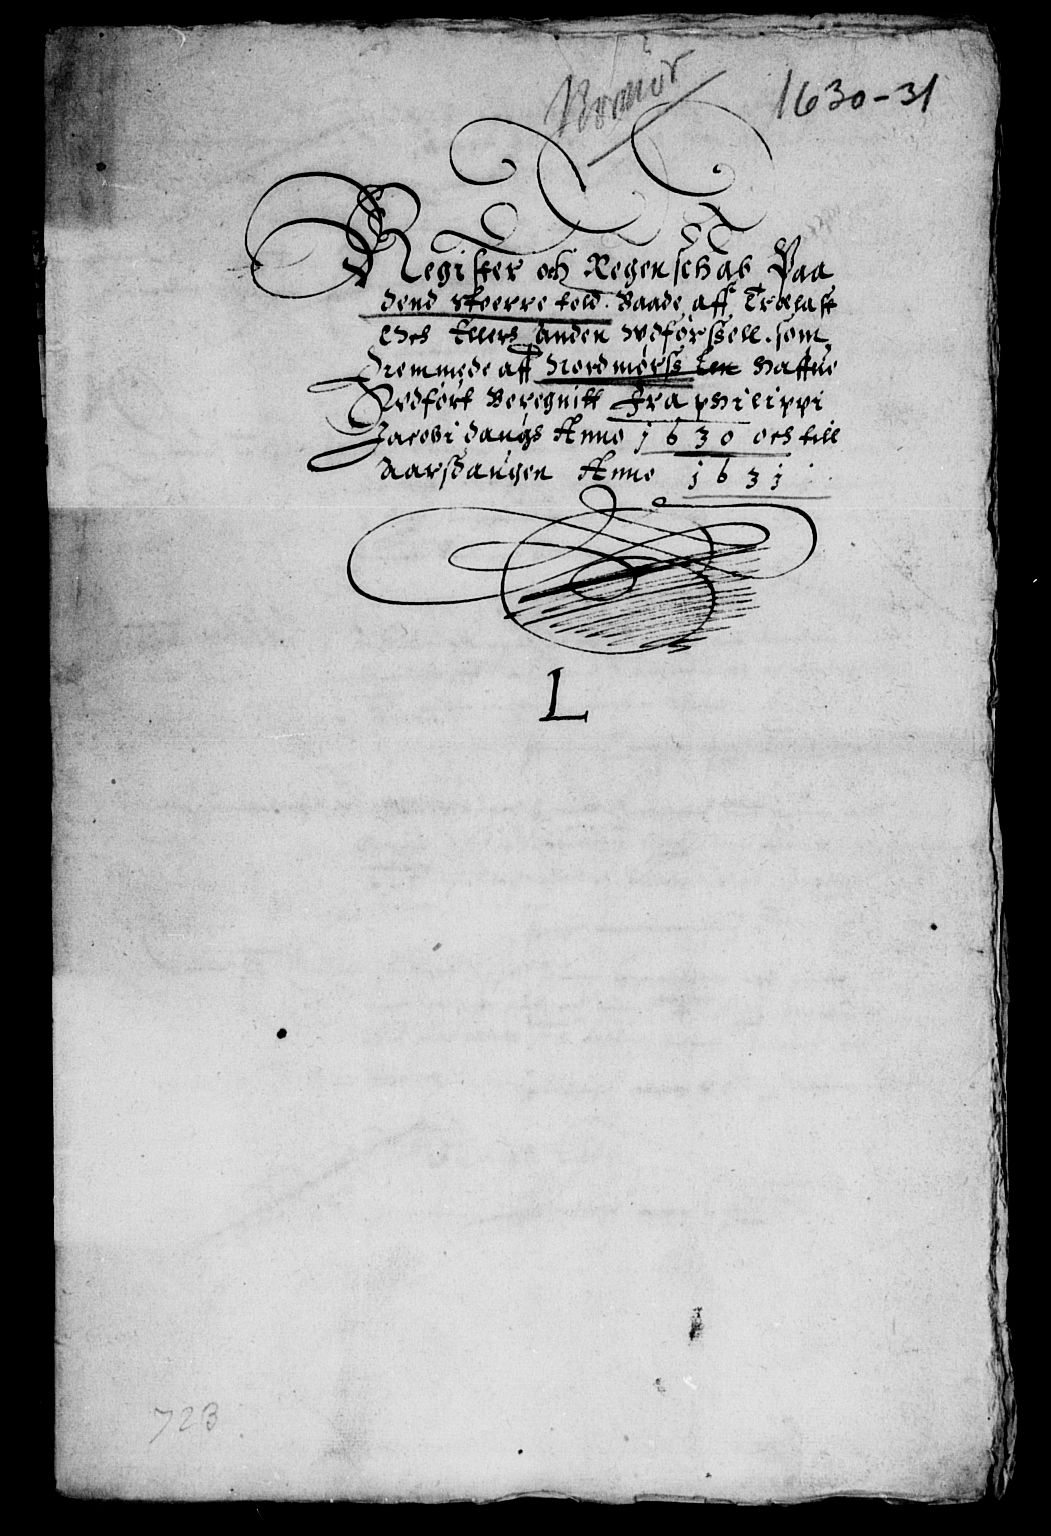 1630-31
Register och Regenschab Paa
dend stoerre told. Baade aff Trælast
Och Ellers Anden Wdførßell. som
Fremmede aff Nordmørß Len Haffue
Wdført Beregnitt Fra philippi
Jacobi daugs Anno 1630 och till
Aarsdaugen Anno 1631
L
723